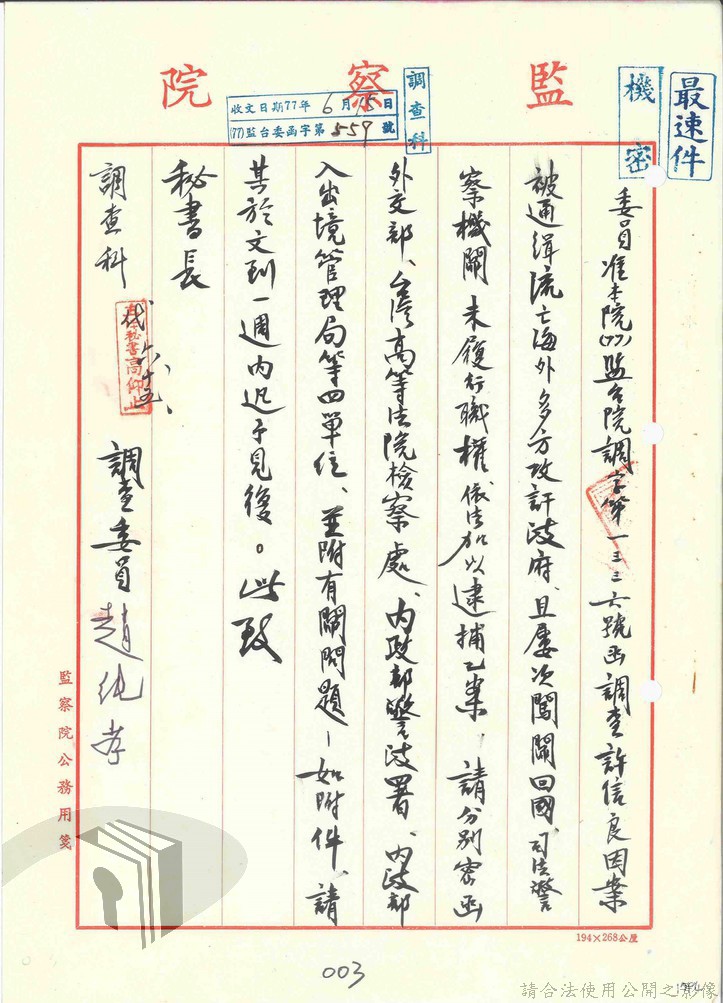 監察院
最速件
機密
調查科
收文日期77年6月15日
(77)監台委函字第559號
委員准本院(77)監台院調字第一三三六號函調查許信良因案
被通緝流亡海外多方攻訐政府、且屢次闖關回國、司法警
察機關未履行職權、依法加以逮捕乙案、請分別密函
外交部、台灣高等法院檢察處、內政部警政署、內政部
入出境管理局等四單位、並附有關問題—如附件、請
其於文到一週內迅予見復。此致
秘書長
調查科
秘書高仰止
代
六、十五、
調查委員趙純孝
監察院公務用箋
194×268公厘
003
請合法使用公開之影像